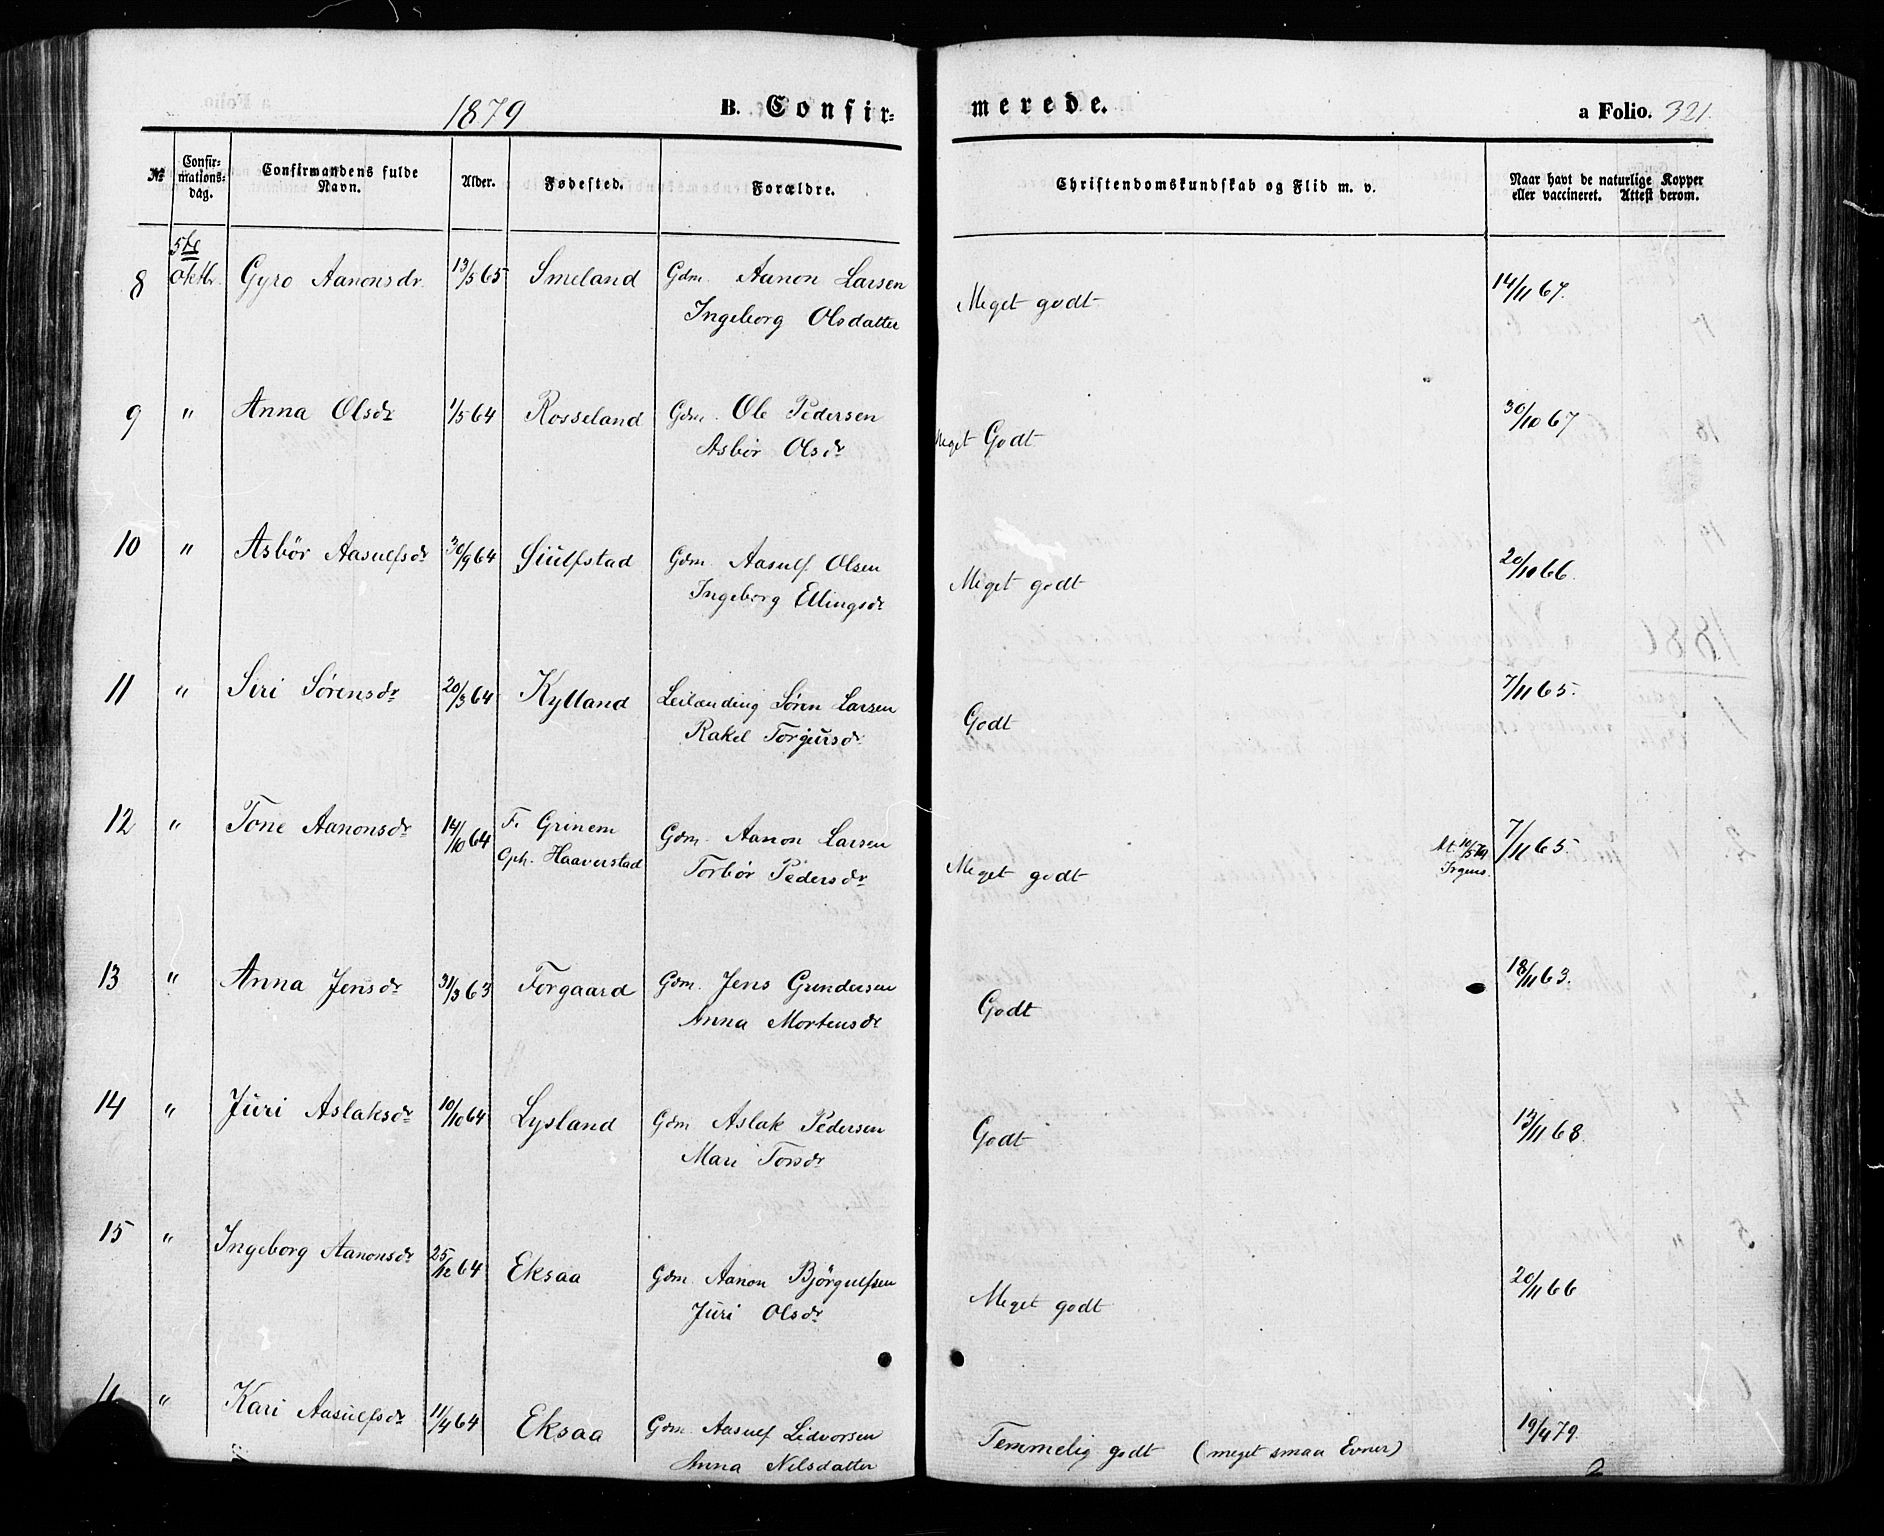 1879 B. Confir- merede. a Folio. 321.
№ Confir-mations-dag. Confirmandens fulde Navn. Alder. Fødested. Forældre. Christendomskundskab og Flid m. v. Naar havt de naturlige Kopper eller vaccineret. Attest derom.
5te
8 Oktbr. Gyro Aanonsdr 13/5 65 Smeland Gdm. Aanon Larsen Meget godt 14/11 67.
Ingeborg Olsdatter
9 " Anna Olsdr 1/5 64 Rosseland Gdm. Ole Pedersen Meget Godt 30/10 67
Asbør Olsdr
10 " Asbør Aasulfsdr 30/9 64 Siulfstad Gdm. Aasulf Olsen Meget godt 20/10 66.
Ingeborg Ellingsdr
11 " Siri Sørensdr 20/3 64 Kylland Leilænding Søren Larsen Godt 7/11 65.
Rakel Torgiursdr
12 " Tone Aanonsdr 14/10 64 F. Grinem Gdm. Aanon Larsen Meget godt At. 10/5 79 7/11 65.
Oph. Haaverstad Torbør Pedersdr Irgens.
13 " Anna Jensdr 31/3 63 Forgaard Gdm. Jens Gundersen Godt 18/11 63.
Anna Mortensdr
14 " Juri Aslaksdr 10/10 64 Lysland Gdm Aslak Pedersen Godt 12/11 68.
Mari Torsdr
15 " Ingeborg Aanonsdr 25/12 64 Eksaa Gdm. Aanon Bjørgulfsen Meget godt 20/11 66
Juri Olsdr
" Kari Aasulfsdr 11/4 64 Eksaa Gdm. Aasulf Lidvorsen Temmelig godt (meget smaa Evner) 19/4 79.
Anna Nilsdatter